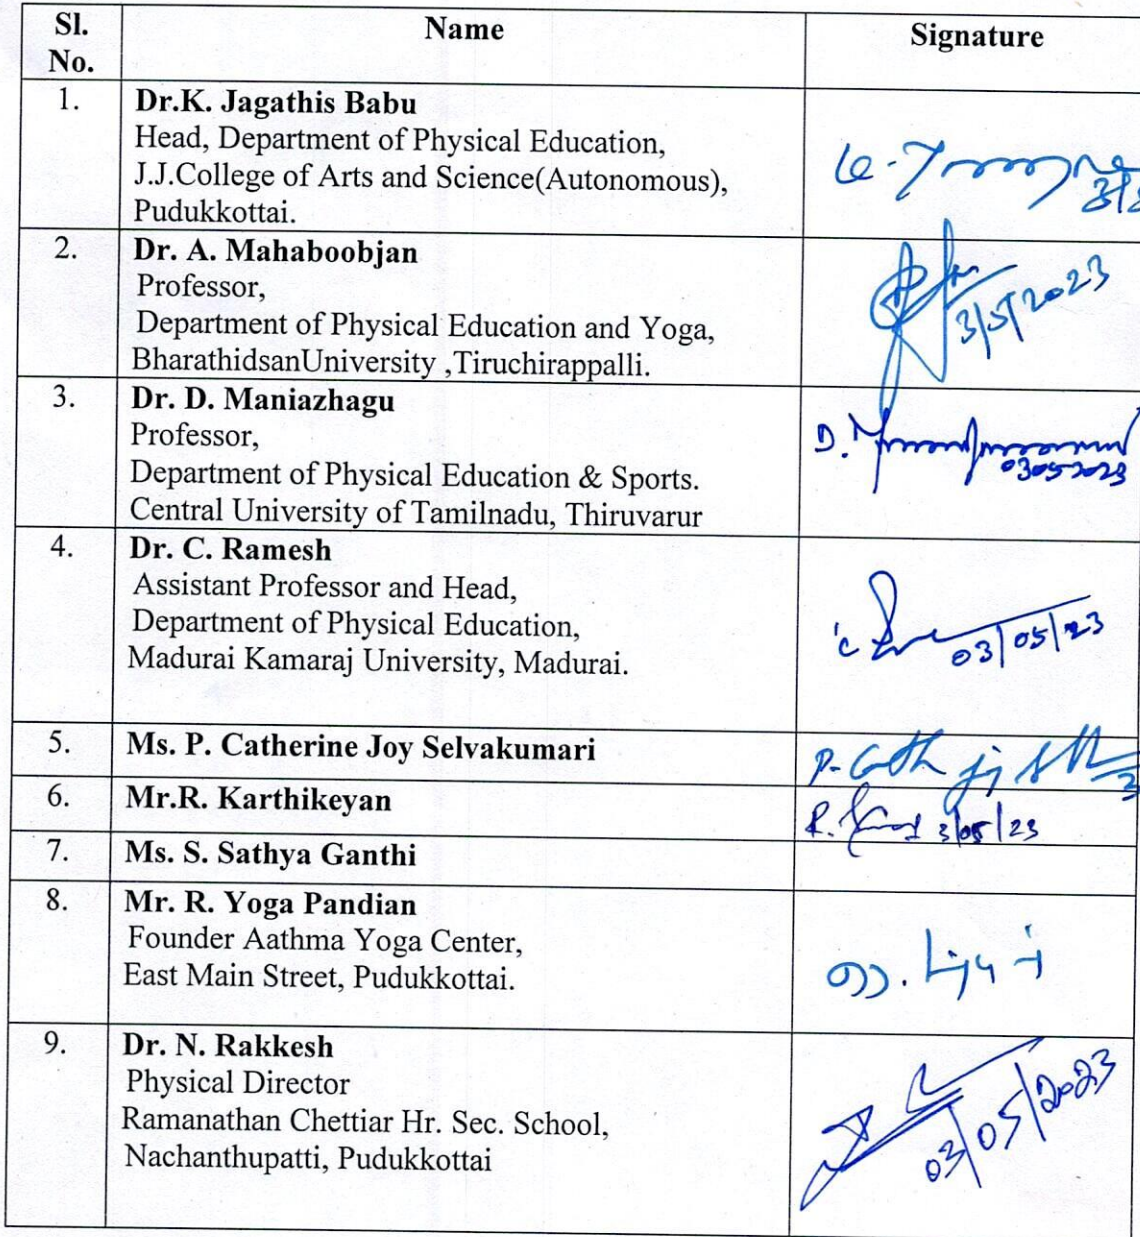 Sl. No.
Name
Signature
1.
Dr.K. Jagathis Babu
Head, Department of Physical Education,
J.J.College of Arts and Science(Autonomous),
Pudukkottai.
2.
Dr. A. Mahaboobjan
Professor,
Department of Physical Education and Yoga,
BharathidsanUniversity ,Tiruchirappalli.
3/5/2023
3.
Dr. D. Maniazhagu
Professor,
Department of Physical Education & Sports.
Central University of Tamilnadu, Thiruvarur
D.
03052023
4.
Dr. C. Ramesh
Assistant Professor and Head,
Department of Physical Education,
Madurai Kamaraj University, Madurai.
03/05/23
5.
Ms. P. Catherine Joy Selvakumari
6.
Mr.R. Karthikeyan
R. 3/05/23
7.
Ms. S. Sathya Ganthi
8.
Mr. R. Yoga Pandian
Founder Aathma Yoga Center,
East Main Street, Pudukkottai.
9.
Dr. N. Rakkesh
Physical Director
Ramanathan Chettiar Hr. Sec. School,
Nachanthupatti, Pudukkottai
03/05/2023